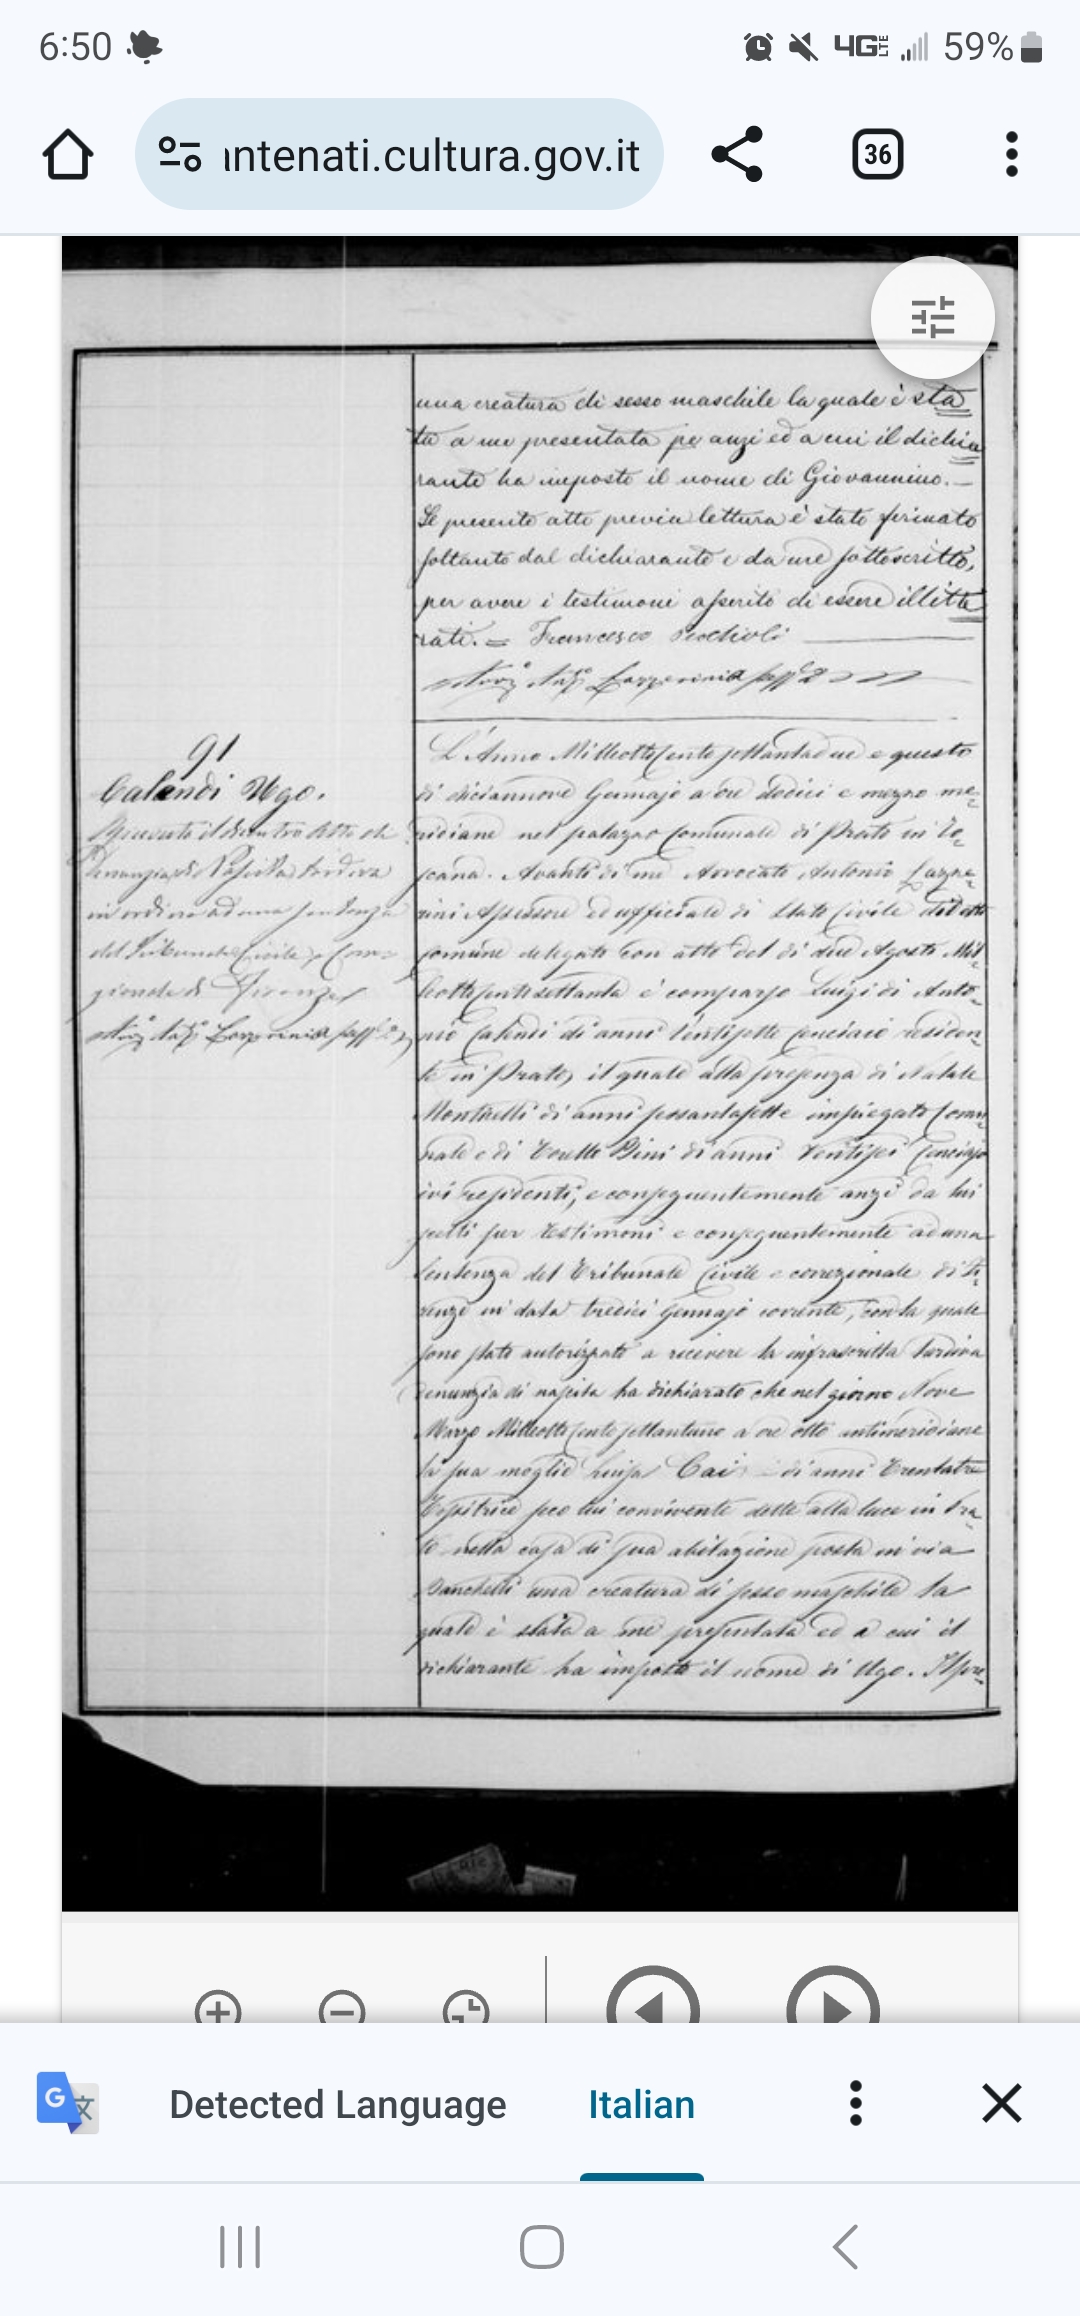 6:50
4G LTE
59%
antenati.cultura.gov.it
36
una creatura di sesso maschile la quale è sta
ta a me presentata pe anzi ed a cui il dichia
rante ha imposto il nome di Giovannino.—
Il presente atto previa lettura è stato firmato
soltanto dal dichiarante e da me sottoscritto,
per avere i testimoni asserito di essere illitte
rati. = Francesco
91
Calendi Ugo.
L'Anno Milleottocento settantadue e questo
di diciannove Gennajo a ore dodici e mezzo me-
ridiane nel palazzo Comunale di Prato in To-
scana. Avanti di me Avvocato Antonio Lazze-
rini Assessore ed uffiziale di Stato Civile di detto
Comune delegato con atto del di due Agosto Mil-
leottocentosettanta è comparso Luigi di Anto-
nio Calendi di anni Ventisette Cenciaio residen-
te in Prato, il quale alla presenza di Natale
di anni sessantasette impiegato Comu-
nale e di Bini di anni Ventisei Cenciajo
ivi residenti, e conseguentemente anzi da lui
scelti per testimoni e conseguentemente ad una
Sentenza del Tribunale Civile e correzionale di Fi-
renze in data tredici Gennajo corrente, con la quale
sono stato autorizzato a ricevere la infrascritta tardiva
denunzia di nascita ha dichiarato che nel giorno Nove
Marzo Milleottocento settantuno a ore otto antimeridiane
la sua moglie Luisa Cai di anni Trentatre
Tessitrice seco lui convivente dette alla luce in Pra-
to nella casa di sua abitazione posta in via
una creatura di sesso maschile la
quale è stata a me presentata ed a cui il
dichiarante ha imposto il nome di Ugo. Il pre-
Detected Language
Italian